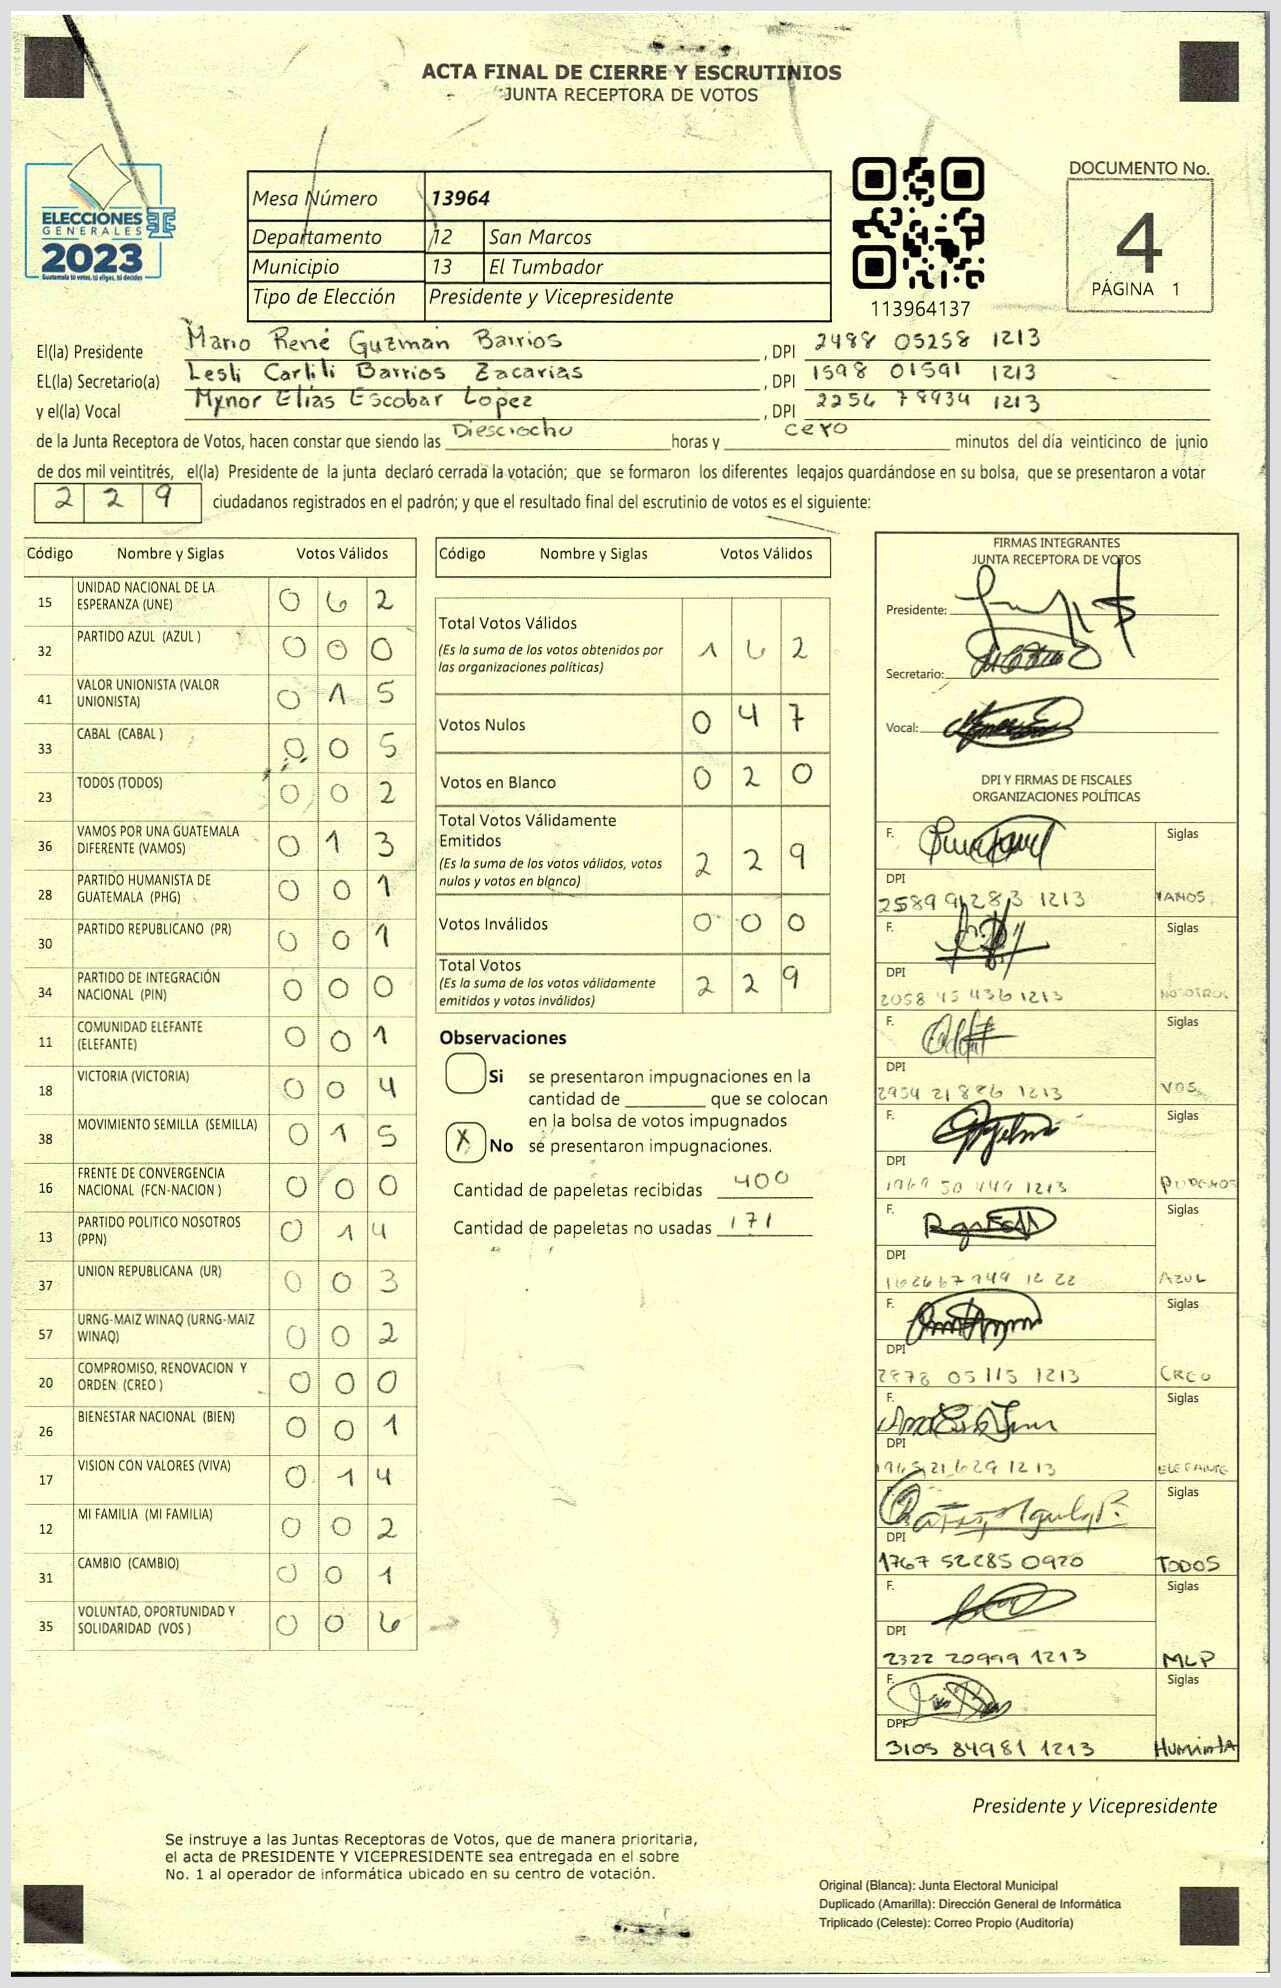 ACTA FINAL DE CIERRE Y ESCRUTINIOS
JUNTA RECEPTORA DE VOTOS
ELECCIONES
GENERALES
2023
Guatemala tú votas, tú eliges, tú decides
Mesa Número 13964
Departamento 12 San Marcos
Municipio 13 El Tumbador
Tipo de Elección Presidente y Vicepresidente
113964137
DOCUMENTO No.
4
PÁGINA 1
El(la) Presidente Mario René Guzmán Barrios, DPI 2488 05258 1213
EL(la) Secretario(a) Lesli Carlili Barrios Zacarias, DPI 1598 01591 1213
y el(la) Vocal Mynor Elías Escobar López, DPI 2256 78934 1213
de la Junta Receptora de Votos, hacen constar que siendo las Diesciocho horas y cero minutos del día veinticinco de junio
de dos mil veintitrés, el(la) Presidente de la junta declaró cerrada la votación; que se formaron los diferentes legajos quardándose en su bolsa, que se presentaron a votar
229 ciudadanos registrados en el padrón; y que el resultado final del escrutinio de votos es el siguiente:
Código Nombre y Siglas Votos Válidos
15 UNIDAD NACIONAL DE LA
ESPERANZA (UNE) 0 6 2
32 PARTIDO AZUL (AZUL ) 0 0 0
41 VALOR UNIONISTA (VALOR
UNIONISTA) 0 1 5
33 CABAL (CABAL ) 0 0 5
23 TODOS (TODOS) 0 0 2
36 VAMOS POR UNA GUATEMALA
DIFERENTE (VAMOS) 0 1 3
28 PARTIDO HUMANISTA DE
GUATEMALA (PHG) 0 0 1
30 PARTIDO REPUBLICANO (PR) 0 0 1
34 PARTIDO DE INTEGRACIÓN
NACIONAL (PIN) 0 0 0
11 COMUNIDAD ELEFANTE
(ELEFANTE) 0 0 1
18 VICTORIA (VICTORIA) 0 0 4
38 MOVIMIENTO SEMILLA (SEMILLA) 0 1 5
16 FRENTE DE CONVERGENCIA
NACIONAL (FCN-NACION ) 0 0 0
13 PARTIDO POLITICO NOSOTROS
(PPN) 0 1 4
37 UNION REPUBLICANA (UR) 0 0 3
57 URNG-MAIZ WINAQ (URNG-MAIZ
WINAQ) 0 0 2
20 COMPROMISO, RENOVACION Y
ORDEN (CREO ) 0 0 0
26 BIENESTAR NACIONAL (BIEN) 0 0 1
17 VISION CON VALORES (VIVA) 0 1 4
12 MI FAMILIA (MI FAMILIA) 0 0 2
31 CAMBIO (CAMBIO) 0 0 1
35 VOLUNTAD, OPORTUNIDAD Y
SOLIDARIDAD (VOS ) 0 0 6
Código Nombre y Siglas Votos Válidos
Total Votos Válidos
(Es la suma de los votos obtenidos por
las organizaciones políticas) 1 6 2
Votos Nulos 0 4 7
Votos en Blanco 0 2 0
Total Votos Válidamente
Emitidos
(Es la suma de los votos válidos, votos
nulos y votos en blanco) 2 2 9
Votos Inválidos 0 0 0
Total Votos
(Es la suma de los votos válidamente
emitidos y votos inválidos) 2 2 9
Observaciones
Si se presentaron impugnaciones en la
cantidad de ________ que se colocan
en la bolsa de votos impugnados
X No se presentaron impugnaciones.
Cantidad de papeletas recibidas 400
Cantidad de papeletas no usadas 171
FIRMAS INTEGRANTES
JUNTA RECEPTORA DE VOTOS
Presidente:
Secretario:
Vocal:
DPI Y FIRMAS DE FISCALES
ORGANIZACIONES POLÍTICAS
F. Siglas
DPI
2589 91283 1213 VAMOS
F. Siglas
DPI
2058 45 436 1213 NOSOTROS
F. Siglas
DPI
2954 21 886 1213 VOS
F. Siglas
DPI
1969 50 449 1213 PODEMOS
F. Siglas
DPI
AZUL
F. Siglas
DPI
2878 05 115 1213 CREO
F. Siglas
DPI
1965 21 629 1213 ELEFANTE
F. Siglas
DPI
1767 52285 0920 TODOS
F. Siglas
DPI
2322 20999 1213 MLP
F. Siglas
DPI
3105 84981 1213
Presidente y Vicepresidente
Se instruye a las Juntas Receptoras de Votos, que de manera prioritaria,
el acta de PRESIDENTE Y VICEPRESIDENTE sea entregada en el sobre
No. 1 al operador de informática ubicado en su centro de votación.
Original (Blanca): Junta Electoral Municipal
Duplicado (Amarilla): Dirección General de Informática
Triplicado (Celeste): Correo Propio (Auditoría)